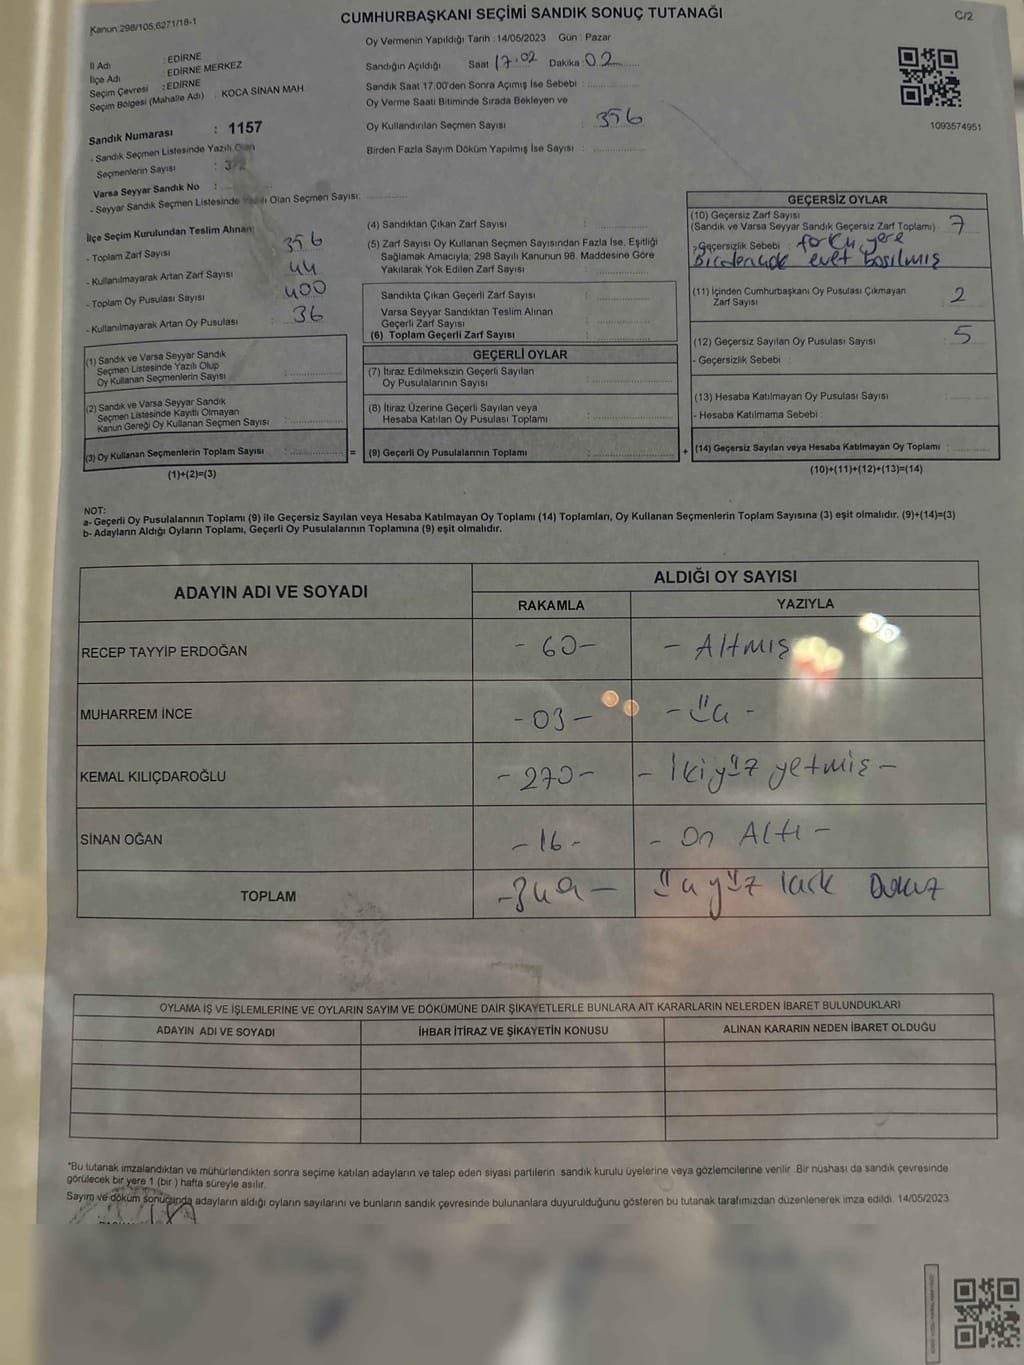 Kanun:298/105,6271/18-1
CUMHURBAŞKANI SEÇİMİ SANDIK SONUÇ TUTANAĞI
C/2
İl Adı : EDİRNE
İlçe Adı : EDİRNE MERKEZ
Seçim Çevresi : EDİRNE
Seçim Bölgesi (Mahalle Adı) : KOCA SİNAN MAH.
Sandık Numarası : 1157
- Sandık Seçmen Listesinde Yazılı Olan
Seçmenlerin Sayısı :
Varsa Seyyar Sandık No :
- Seyyar Sandık Seçmen Listesinde Yazılı Olan Seçmen Sayısı:
Oy Vermenin Yapıldığı Tarih : 14/05/2023 Gün : Pazar
Sandığın Açıldığı Saat 17.02 Dakika 02
Sandık Saat 17.00'den Sonra Açımış İse Sebebi :
Oy Verme Saati Bitiminde Sırada Bekleyen ve
Oy Kullandırılan Seçmen Sayısı : 356
Birden Fazla Sayım Döküm Yapılmış İse Sayısı :
1093574951
İlçe Seçim Kurulundan Teslim Alınan:
- Toplam Zarf Sayısı : 356
- Kullanılmayarak Artan Zarf Sayısı : 44
- Toplam Oy Pusulası Sayısı : 400
- Kullanılmayarak Artan Oy Pusulası : 36
(1) Sandık ve Varsa Seyyar Sandık
Seçmen Listesinde Yazılı Olup
Oy Kullanan Seçmenlerin Sayısı :
(2) Sandık ve Varsa Seyyar Sandık
Seçmen Listesinde Kayıtlı Olmayan
Kanun Gereği Oy Kullanan Seçmen Sayısı :
(3) Oy Kullanan Seçmenlerin Toplam Sayısı :
=
(1)+(2)=(3)
(4) Sandıktan Çıkan Zarf Sayısı :
(5) Zarf Sayısı Oy Kullanan Seçmen Sayısından Fazla İse, Eşitliği
Sağlamak Amacıyla; 298 Sayılı Kanunun 98. Maddesine Göre
Yakılarak Yok Edilen Zarf Sayısı :
Sandıkta Çıkan Geçerli Zarf Sayısı :
Varsa Seyyar Sandıktan Teslim Alınan
Geçerli Zarf Sayısı :
(6) Toplam Geçerli Zarf Sayısı :
GEÇERLİ OYLAR
(7) İtiraz Edilmeksizin Geçerli Sayılan
Oy Pusulalarının Sayısı :
(8) İtiraz Üzerine Geçerli Sayılan veya
Hesaba Katılan Oy Pusulası Toplamı :
(9) Geçerli Oy Pusulalarının Toplamı :
+
GEÇERSİZ OYLAR
(10) Geçersiz Zarf Sayısı
(Sandık ve Varsa Seyyar Sandık Geçersiz Zarf Toplamı) : 7
- Geçersizlik Sebebi : yere
evet basılmış
(11) İçinden Cumhurbaşkanı Oy Pusulası Çıkmayan
Zarf Sayısı : 2
(12) Geçersiz Sayılan Oy Pusulası Sayısı : 5
- Geçersizlik Sebebi :
(13) Hesaba Katılmayan Oy Pusulası Sayısı :
- Hesaba Katılmama Sebebi :
(14) Geçersiz Sayılan veya Hesaba Katılmayan Oy Toplamı :
(10)+(11)+(12)+(13)=(14)
NOT:
a- Geçerli Oy Pusulalarının Toplamı (9) ile Geçersiz Sayılan veya Hesaba Katılmayan Oy Toplamı (14) Toplamları, Oy Kullanan Seçmenlerin Toplam Sayısına (3) eşit olmalıdır. (9)+(14)=(3)
b- Adayların Aldığı Oyların Toplamı, Geçerli Oy Pusulalarının Toplamına (9) eşit olmalıdır.
ADAYIN ADI VE SOYADI
ALDIĞI OY SAYISI
RAKAMLA YAZIYLA
RECEP TAYYİP ERDOĞAN - 60 - - Altmış
MUHARREM İNCE - 03 - - üç -
KEMAL KILIÇDAROĞLU - 270 - - İkiyüz yetmiş -
SİNAN OĞAN - 16 - - On Altı -
TOPLAM - 349 - üçyüz kırk Dokuz
OYLAMA İŞ VE İŞLEMLERİNE VE OYLARIN SAYIM VE DÖKÜMÜNE DAİR ŞİKAYETLERLE BUNLARA AİT KARARLARIN NELERDEN İBARET BULUNDUKLARI
ADAYIN ADI VE SOYADI İHBAR İTİRAZ VE ŞİKAYETİN KONUSU ALINAN KARARIN NEDEN İBARET OLDUĞU
*Bu tutanak imzalandıktan ve mühürlendikten sonra seçime katılan adayların ve talep eden siyasi partilerin sandık kurulu üyelerine veya gözlemcilerine verilir. Bir nüshası da sandık çevresinde
görülecek bir yere 1 (bir ) hafta süreyle asılır.
Sayım ve döküm sonucunda adayların aldığı oyların sayılarını ve bunların sandık çevresinde bulunanlara duyurulduğunu gösteren bu tutanak tarafımızdan düzenlenerek imza edildi. 14/05/2023